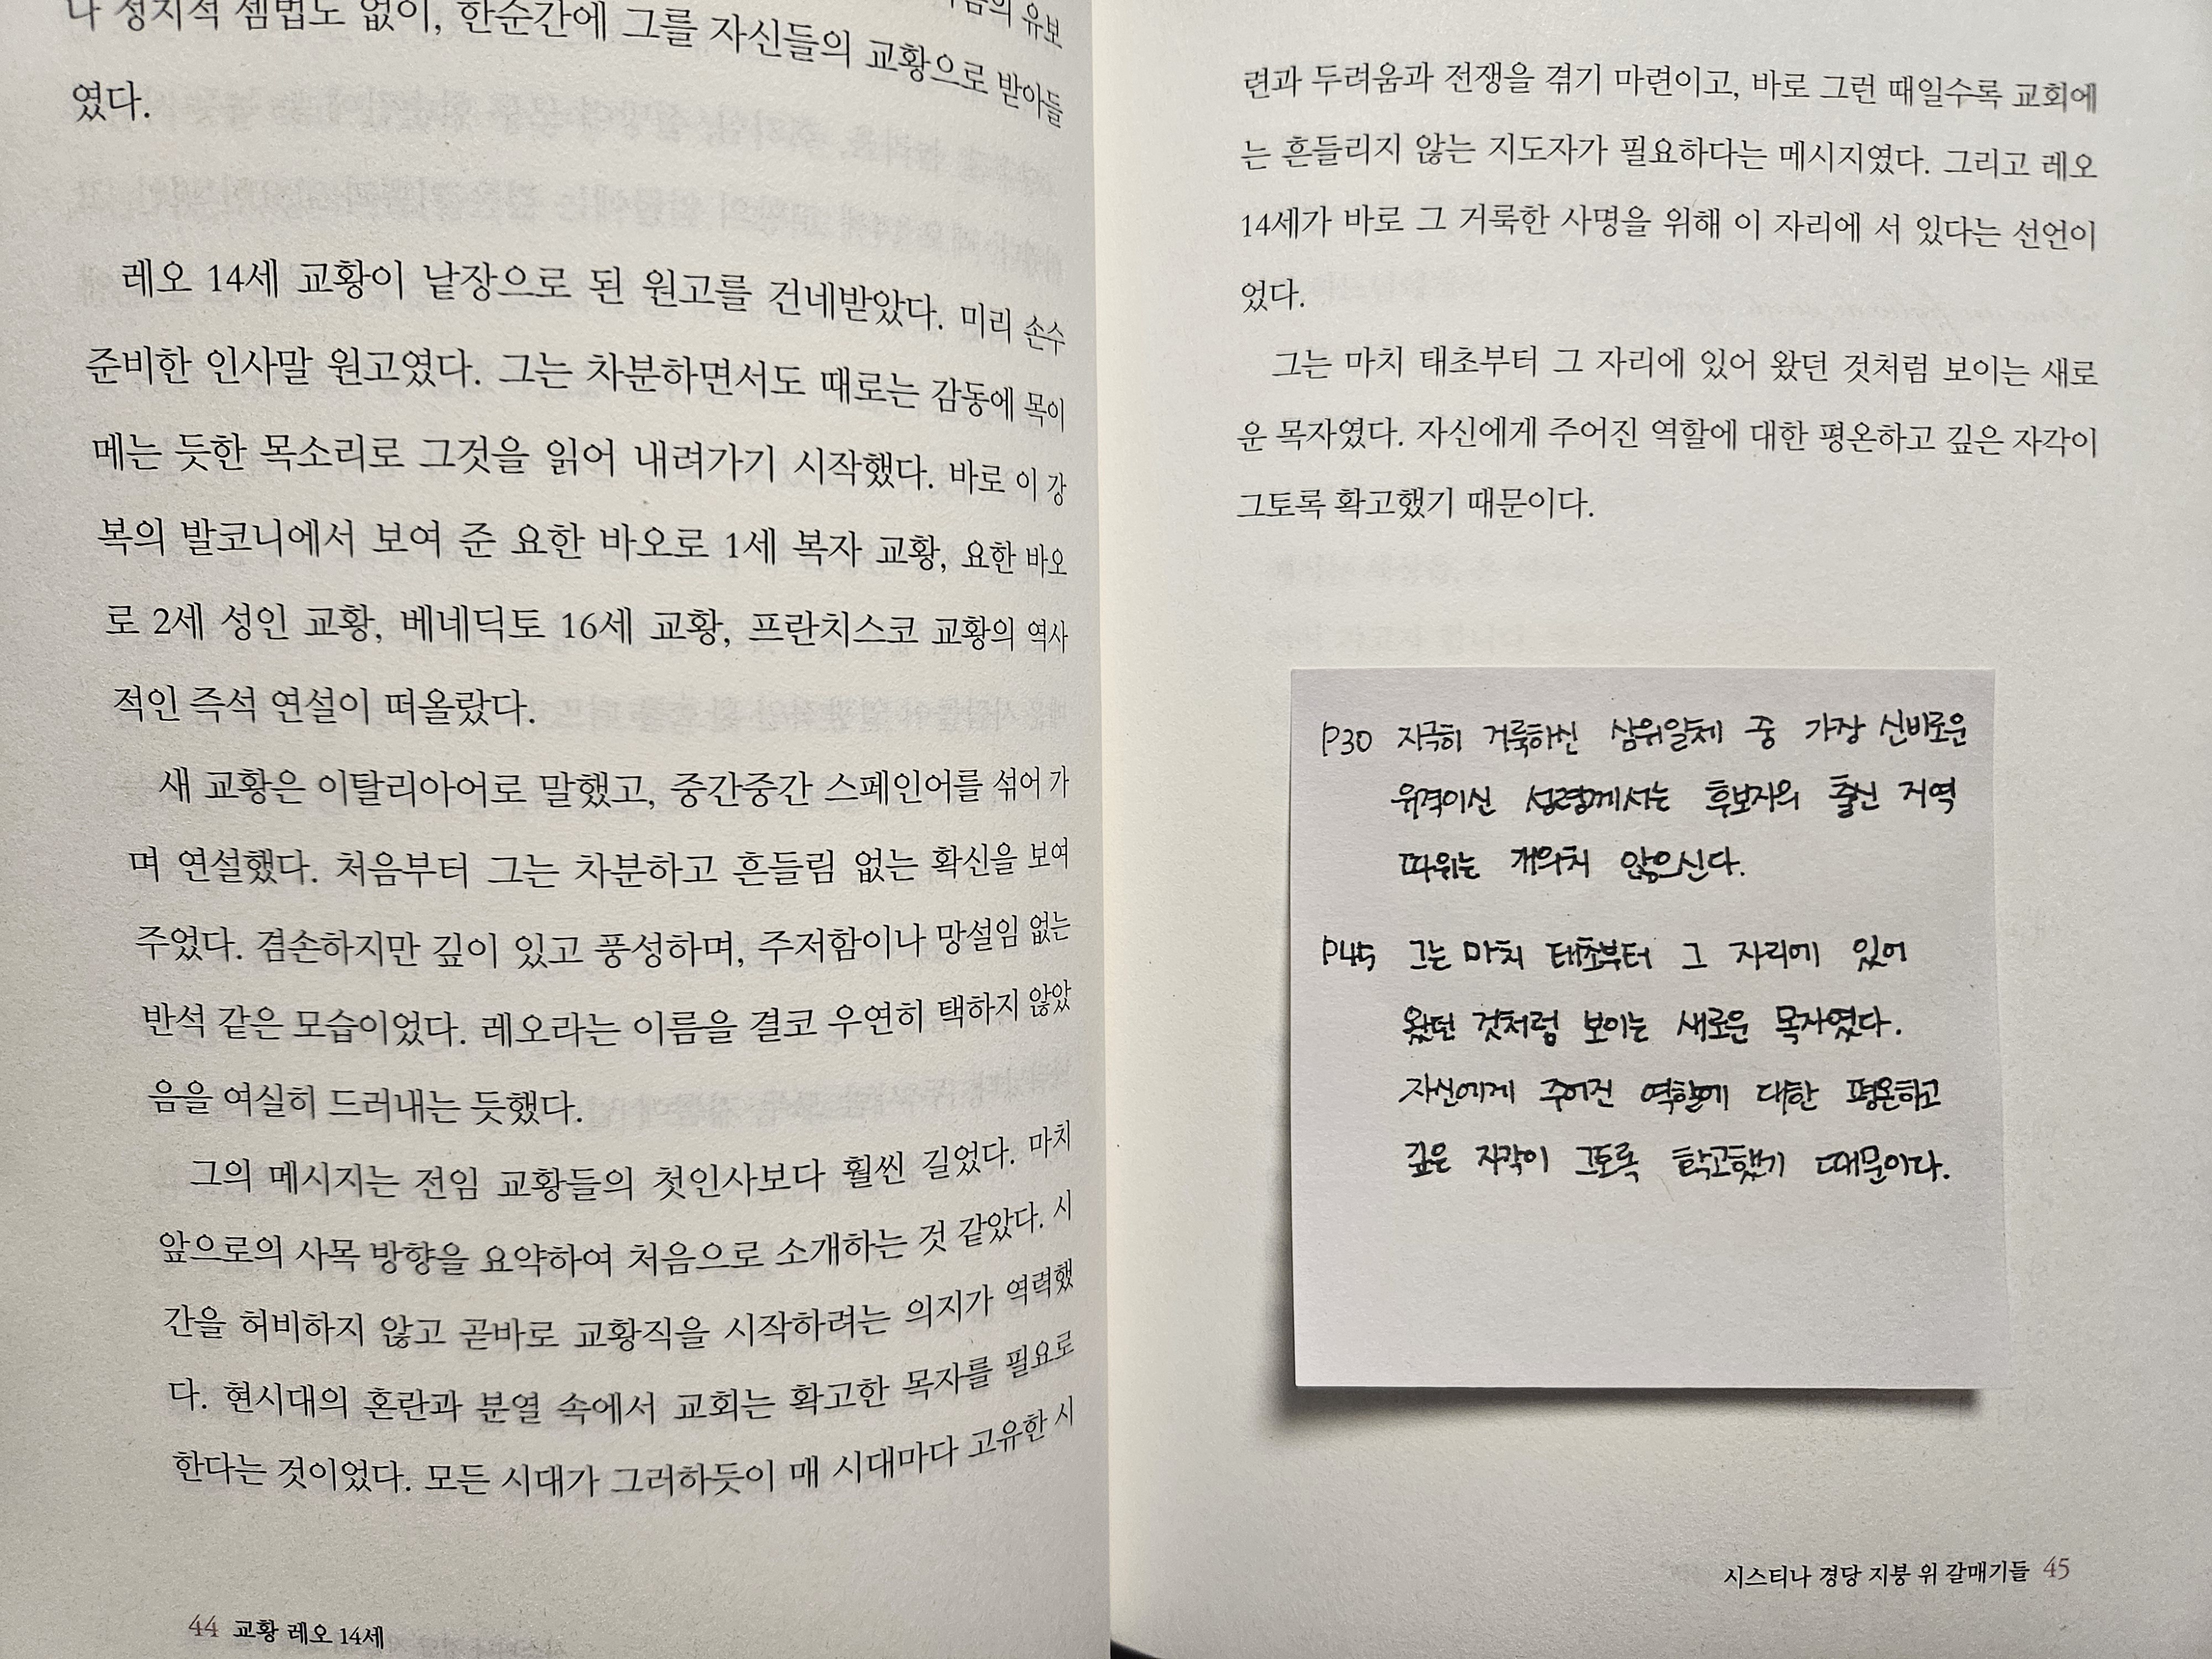 음의 유보
나 정치적 셈법도 없이, 한순간에 그를 자신들의 교황으로 받아들
였다.
레오 14세 교황이 낱장으로 된 원고를 건네받았다. 미리 손수
준비한 인사말 원고였다. 그는 차분하면서도 때로는 감동에 목이
메는 듯한 목소리로 그것을 읽어 내려가기 시작했다. 바로 이 강
복의 발코니에서 보여 준 요한 바오로 1세 복자 교황, 요한 바오
로 2세 성인 교황, 베네딕토 16세 교황, 프란치스코 교황의 역사
적인 즉석 연설이 떠올랐다.
새 교황은 이탈리아어로 말했고, 중간중간 스페인어를 섞어 가
며 연설했다. 처음부터 그는 차분하고 흔들림 없는 확신을 보여
주었다. 겸손하지만 깊이 있고 풍성하며, 주저함이나 망설임 없는
반석 같은 모습이었다. 레오라는 이름을 결코 우연히 택하지 않았
음을 여실히 드러내는 듯했다.
그의 메시지는 전임 교황들의 첫인사보다 훨씬 길었다. 마치
앞으로의 사목 방향을 요약하여 처음으로 소개하는 것 같았다. 시
간을 허비하지 않고 곧바로 교황직을 시작하려는 의지가 역력했
다. 현시대의 혼란과 분열 속에서 교회는 확고한 목자를 필요로
한다는 것이었다. 모든 시대가 그러하듯이 매 시대마다 고유한 시
44 교황 레오 14세
련과 두려움과 전쟁을 겪기 마련이고, 바로 그런 때일수록 교회에
는 흔들리지 않는 지도자가 필요하다는 메시지였다. 그리고 레오
14세가 바로 그 거룩한 사명을 위해 이 자리에 서 있다는 선언이
었다.
그는 마치 태초부터 그 자리에 있어 왔던 것처럼 보이는 새로
운 목자였다. 자신에게 주어진 역할에 대한 평온하고 깊은 자각이
그토록 확고했기 때문이다.
P30 지극히 거룩하신 삼위일체 중 가장 신비로운
위격이신 성령께서는 후보자의 출신 지역
따위는 개의치 않으신다.
P45 그는 마치 태초부터 그 자리에 있어
왔던 것처럼 보이는 새로운 목자였다.
자신에게 주어진 역할에 대한 평온하고
깊은 자각이 그토록 확고했기 때문이다.
시스티나 경당 지붕 위 갈매기들 45